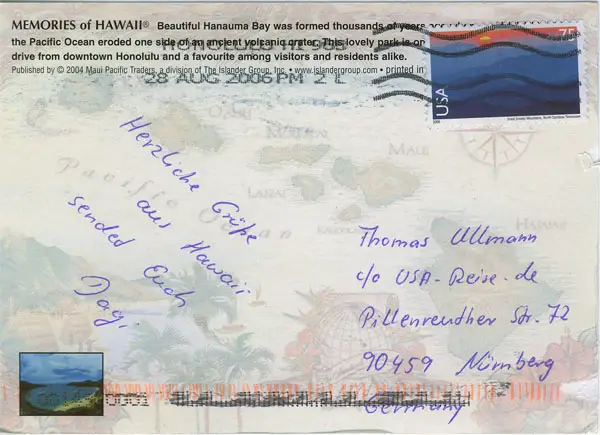 MEMORIES of HAWAII® Beautiful Hanauma Bay was formed thousands of years
the Pacific Ocean eroded one side of an ancient volcanic crater. This lovely park is
drive from downtown Honolulu and a favourite among visitors and residents alike.
Published by © 2004 Maui Pacific Traders, a division of The Islander Group, Inc. • www.islandergroup.com • printed in
HONOLULU HI 968
28 AUG 2006 PM 2 L
75
USA
Great Smoky Mountains, North Carolina-Tennessee
OAHU
MOLOKAI
MAUI
LANAI
HAWAII
Pacific Ocean
Herzliche Grüße
aus Hawaii
sendet Euch
Dag.
Thomas Ullmann
c/o USA-Reise.de
Pillenreuther Str. 72
90459 Nürnberg
Germany